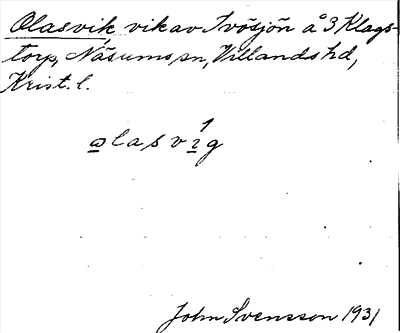 Olasvik, vik av Ivösjön å 3 Klags-
torp, Näsums sn, Villands hd,
Krist. l.
ɷlasvı̲́g
John Svensson 1931